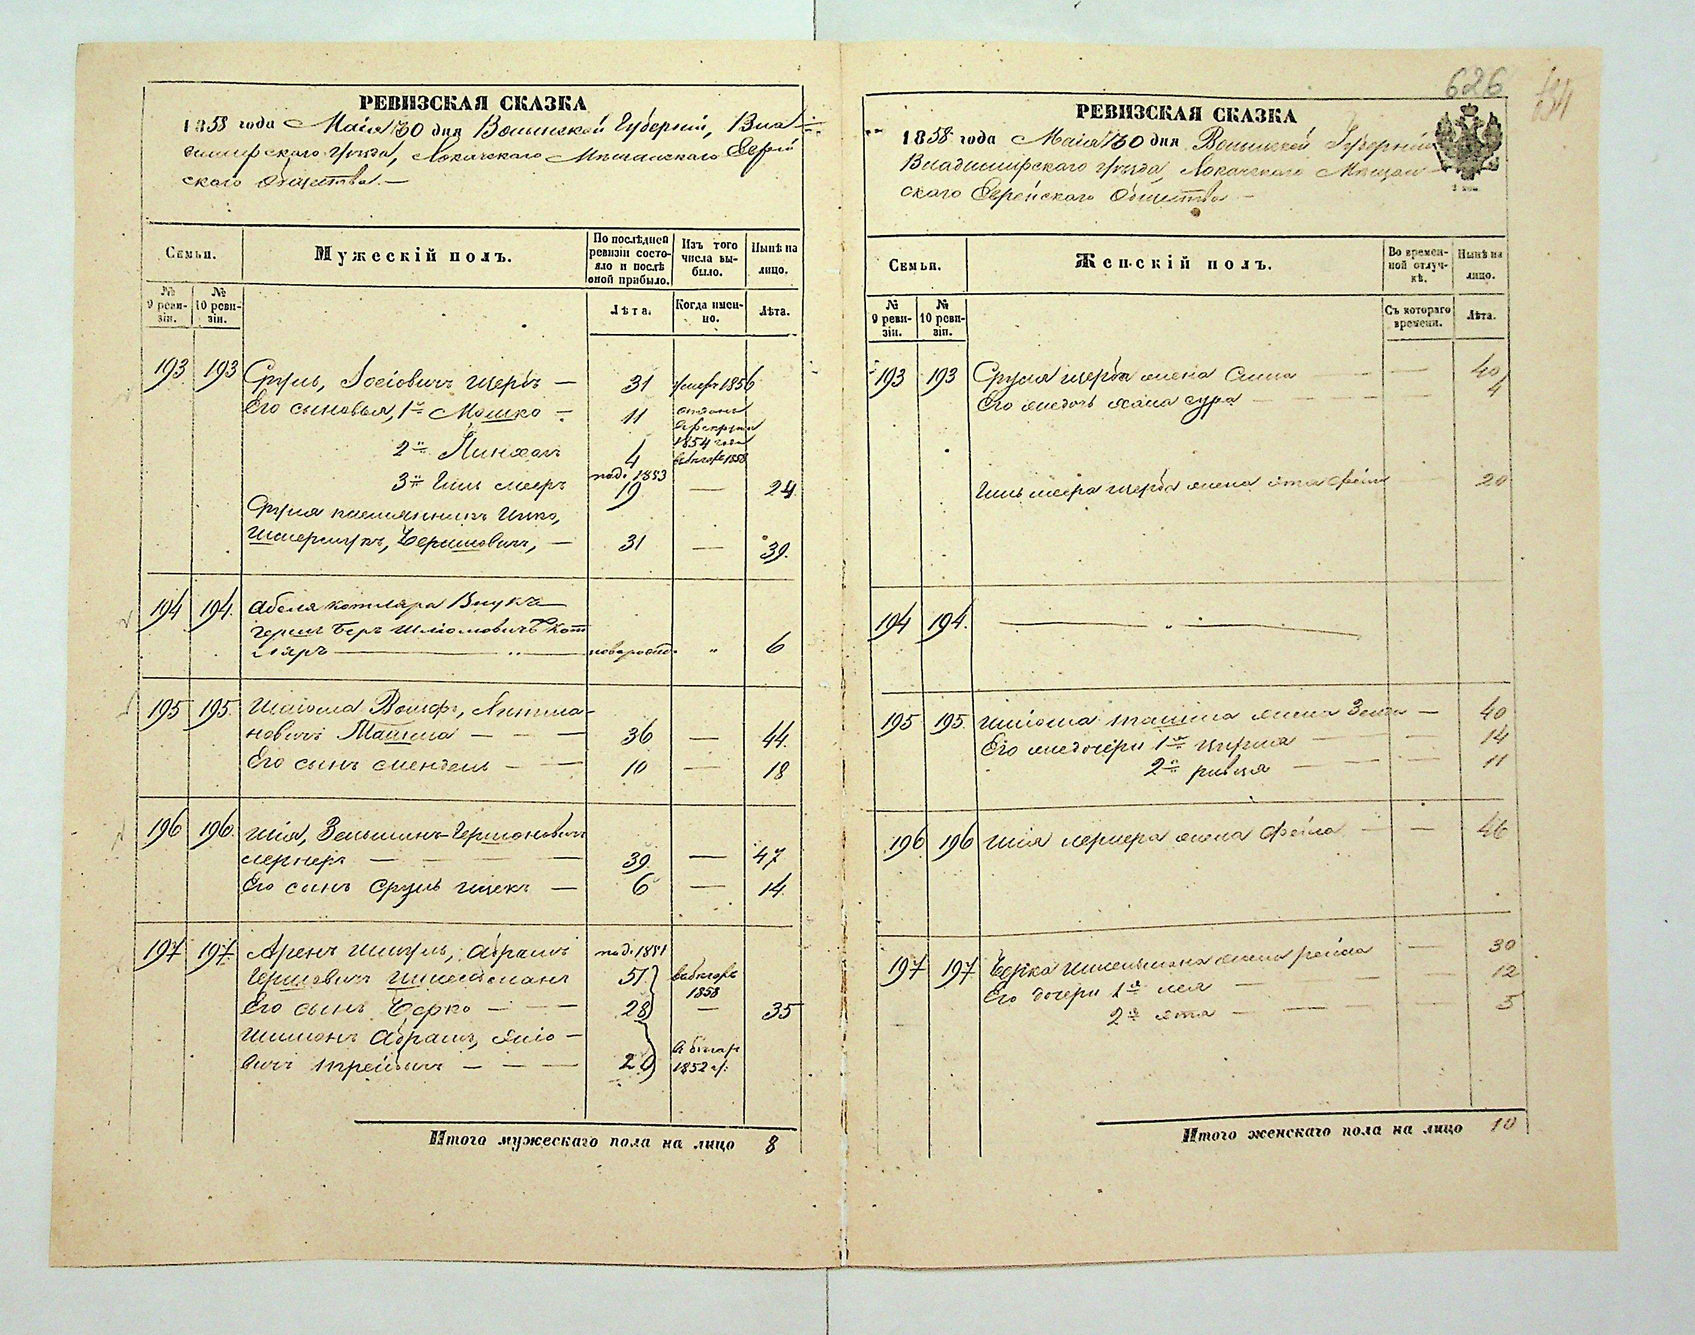 626
РЕВИЗСКАЯ СКАЗКА
1858 года Маія 30 дня Волынской Губерніи, Вла-
димирскаго уѣзда, Локачскаго Мѣщанскаго Еврей
скаго Общества.—
Семьи.
Мужескій полъ.
По послѣдней ревизіи состо-яло и послѣ оной прибыло.
Изъ того числа вы-было.
Нынѣ на лицо.
№ 9 реви-зіи.
№ 10 реви-зіи.
Лѣта.
Когда имен-но.
Лѣта.
193 193 Сруль, Іосіовичъ Щербъ — 31 умеръ 1856
Его сыновья, 1й Мошко — 11 отданъ в рекруты 1854 года
2й Пинхасъ 4 1858
3й 1853 19 — 24
Сруля племянникъ Ицко,
Шмерлукъ, Беришовичъ, — 31 — 39.
194 194. Абеля Котляра Внукъ
Гершъ Беръ Шліомовичъ Кот
ляръ — " — " 6
195 195. Шліома Вольфъ,
новичъ — — — 36 — 44.
Его сынъ Мендель — — 10 — 18
196 196. Шія, Зельманъ-Гершоновичъ
Лернеръ — — — — 39 — 47
Его сынъ Сруль Ицекъ — 6 — 14.
197 197. Аренъ Шмуль, Абрамъ 1851
Гершовичъ 51 1858
Его сынъ Берко — — — 28 — 35
Шимонъ Абрамъ,
— — — 1852
Итого мужескаго пола на лицо 8
РЕВИЗСКАЯ СКАЗКА
1858 года Маія 30 дня Волынской Губерніи
Владимирскаго уѣзда, Локачскаго Мѣщан-
скаго Еврейскаго Общества —
Семьи.
Женскій полъ.
Во времен-ной отлуч-кѣ.
Нынѣ на лицо.
№ 9 реви-зіи.
№ 10 реви-зіи.
Съ котораго времени.
Лѣта.
193 193 Сруля Щерба жена — — 40
Его дочь Хана Сура — — — — 4
Щерба жена — 20
194 194. — " —
195 195. Шліома жена — 40
Его дочери 1я — — — 14
2я Ривця — — — 11
196 196 Шія Лернера жена Фейга — — 46
197 197. Берка жена Рейза — 30
Его дочери 1я Лея — — — 12
2я — — — 5
Итого женскаго пола на лицо 10